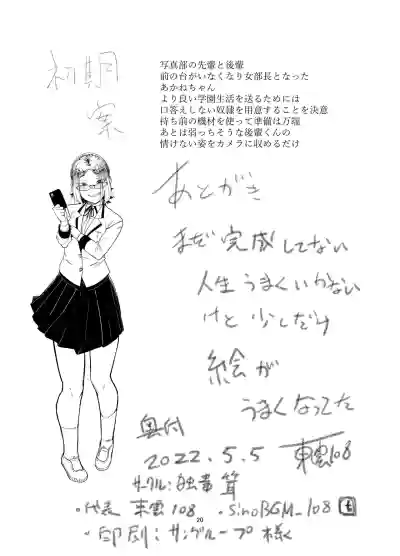 初期
案
写真部の先輩と後輩
前の台がいなくなり女部長となった
あかねちゃん
より良い学園生活を送るためには
口答えしない奴隷を用意することを決意
持ち前の機材を使って準備は万端
あとは弱っちそうな後輩くんの
情けない姿をカメラに収めるだけ
あとがき
まだ完成してない
人生うまくいかない
けど少しだけ
絵が
うまくなってた
奥付
2022.5.5 東雲108
サークル:独書茸
・代表 東雲108 ・SinoBGM_108
20
・印刷:サングループ様